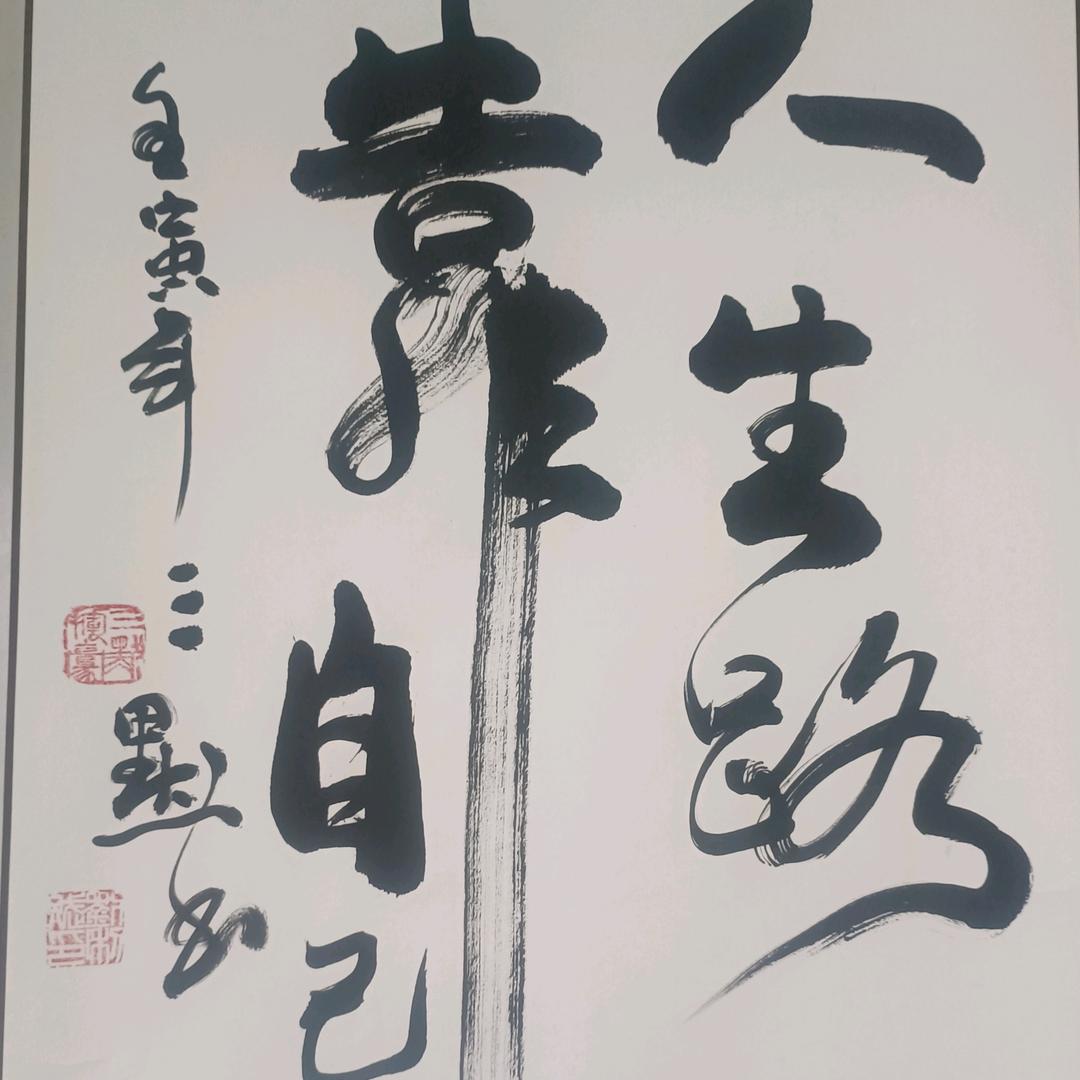 人生路
靠自己
壬寅年 三默书